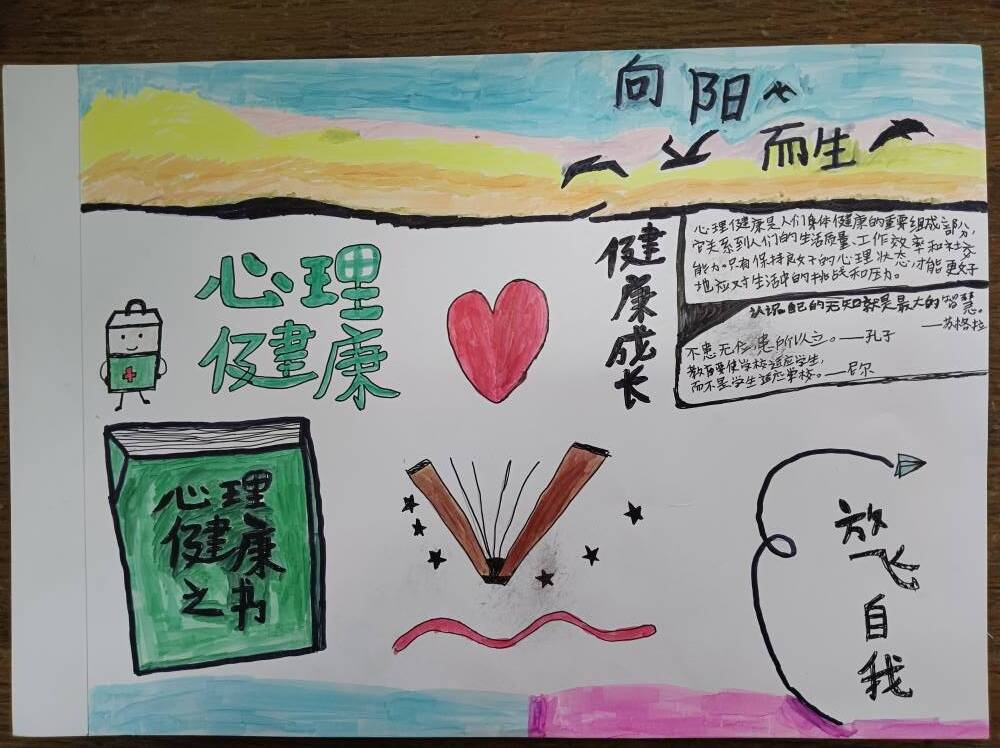 向阳
而生
心理
健康
健康成长
心理健康是人们身体健康的重要组成部分,
它关系到人们的生活质量、工作效率和社交
能力。只有保持良好的心理状态,才能更好
地应对生活中的挑战和压力。
认识自己的无知就是最大的智慧。
——苏格拉
不患无位,患所以立。——孔子
教育要使学校适应学生,
而不是学生适应学校。——尼尔
心理
健康
之书
放飞自我